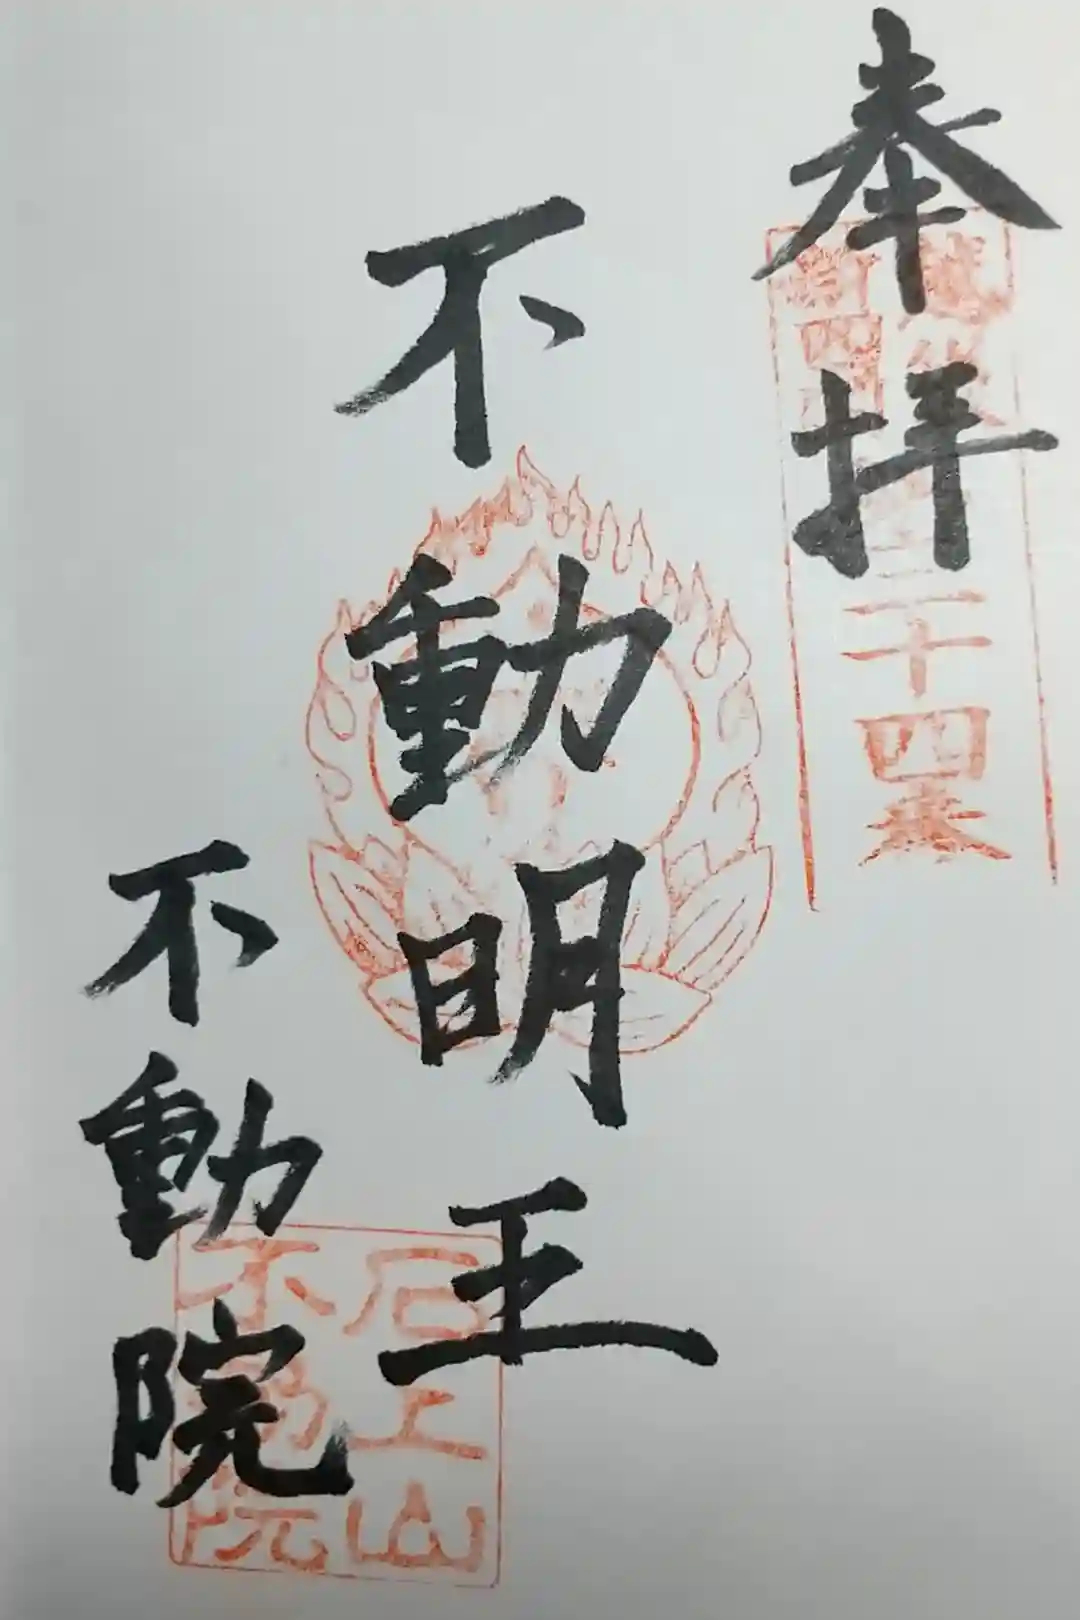 奉拝
二十四番
不動明王
不動院
石上山
不動院